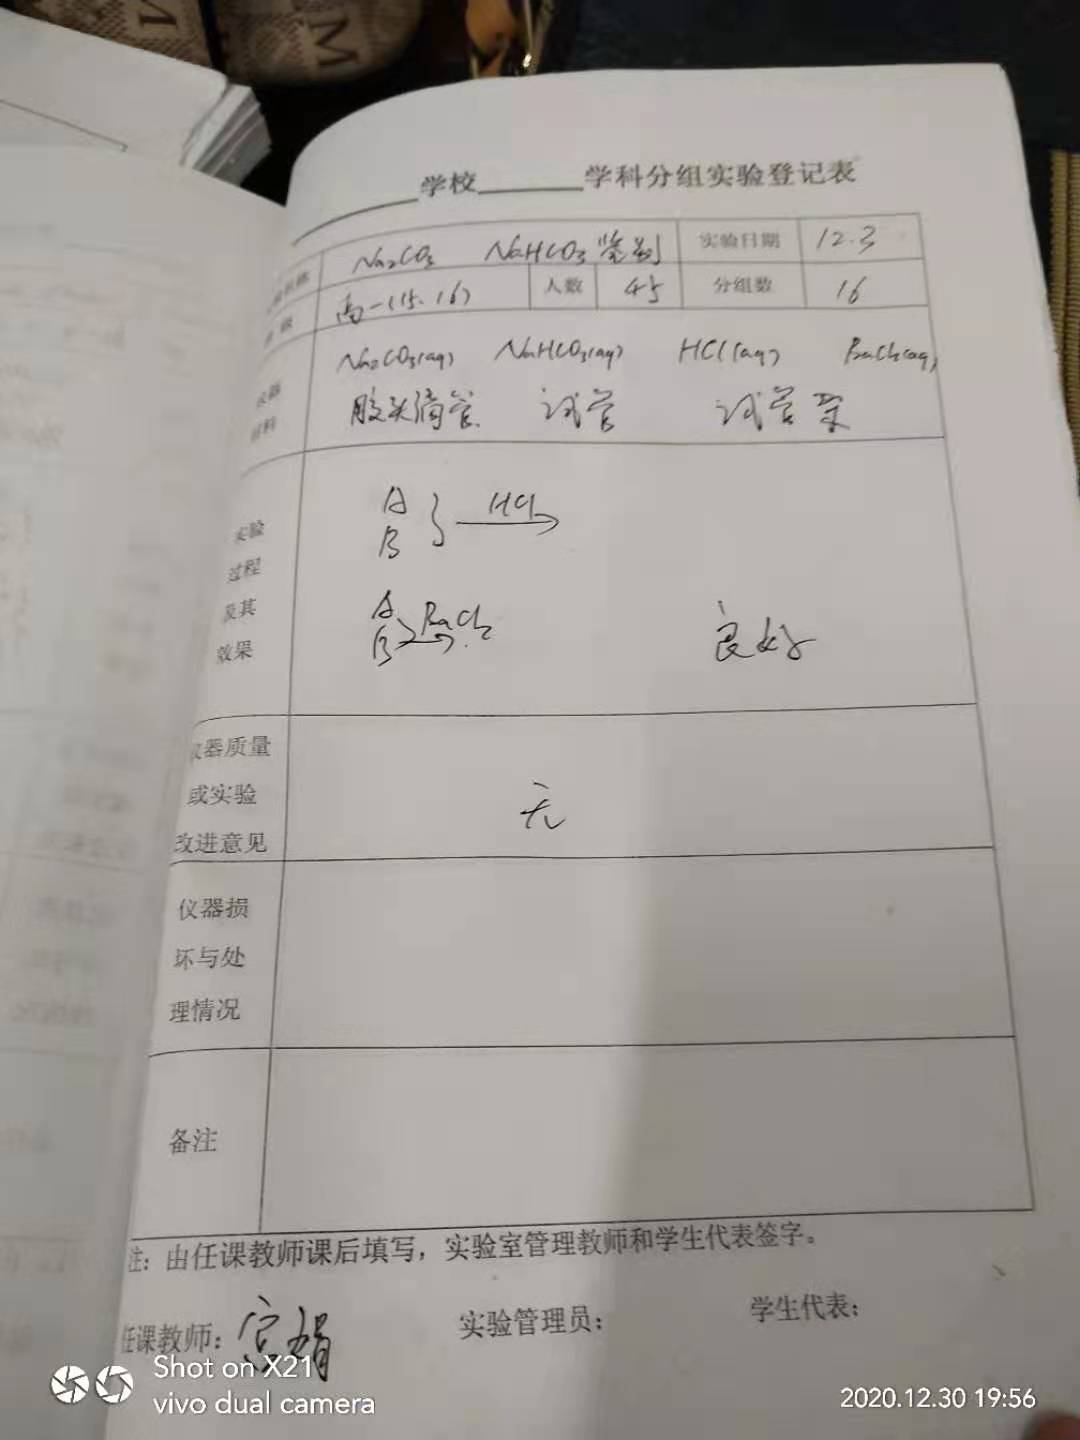 学校 学科分组实验登记表
Na₂CO₃ NaHCO₃ 鉴别 实验日期 12.3
高一(15.16) 人数 45 分组数 16
Na₂CO₃(aq) NaHCO₃(aq) HCl(aq) BaCl₂(aq)
胶头滴管 试管 试管架
材料
实验
过程
及其
效果
A
B } HCl →
A
B BaCl₂ →
良好
仪器质量
或实验
改进意见
无
仪器损
坏与处
理情况
备注
注：由任课教师课后填写，实验室管理教师和学生代表签字。
任课教师： 实验管理员： 学生代表：
Shot on X21
vivo dual camera
2020.12.30 19:56
M